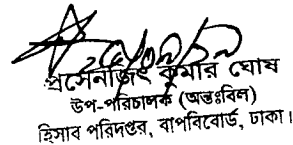 প্রসেনজিৎ কুমার ঘোষ
উপ-পরিচালক (অন্তঃবিল)
হিসাব পরিদপ্তর, বাপবিবোর্ড, ঢাকা।